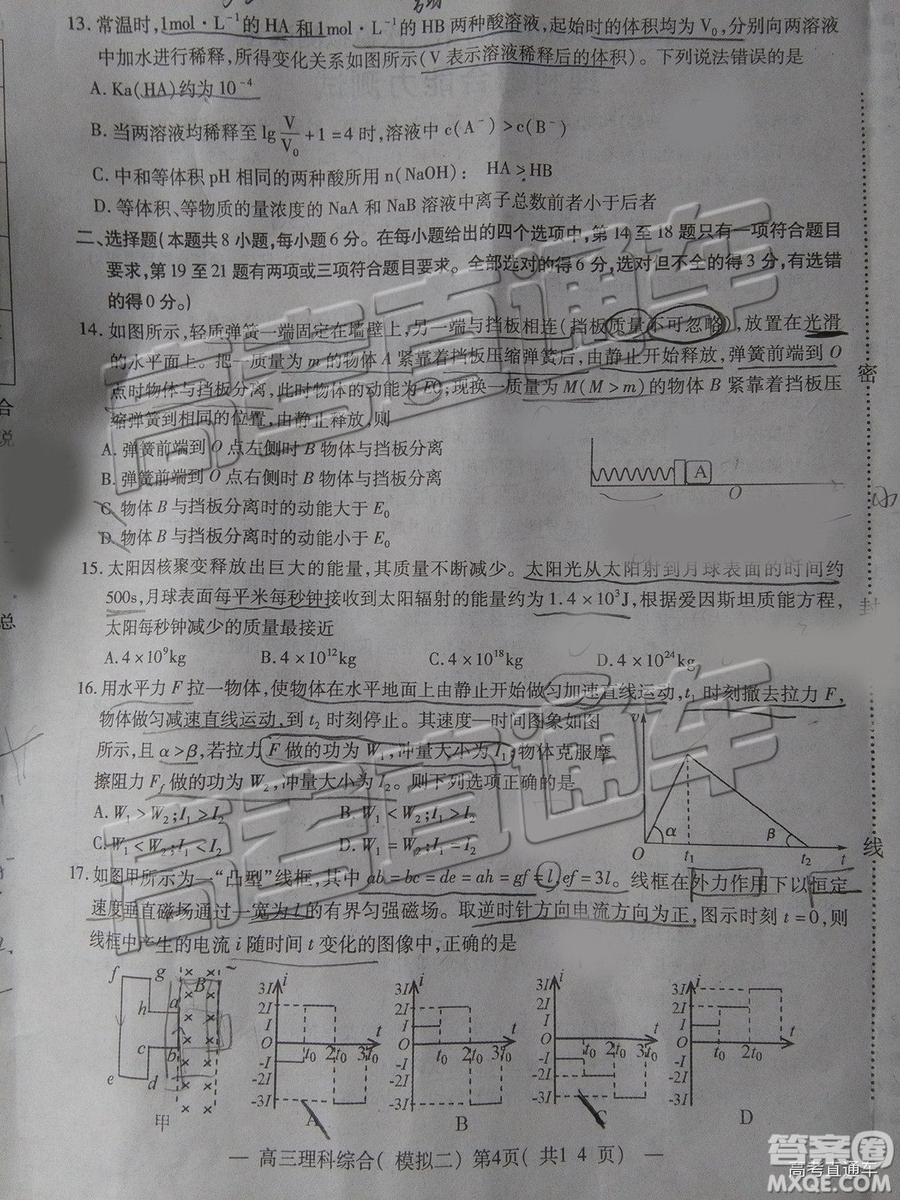 13. 常温时,1mol·L⁻¹的 HA 和 1mol·L⁻¹的 HB 两种酸溶液,起始时的体积均为 V₀,分别向两溶液
中加水进行稀释,所得变化关系如图所示(V 表示溶液稀释后的体积)。下列说法错误的是
A. Ka(HA)约为 10⁻⁴
B. 当两溶液均稀释至 lg V/V₀ +1=4 时,溶液中 c(A⁻)>c(B⁻)
C. 中和等体积 pH 相同的两种酸所用 n(NaOH): HA>HB
D. 等体积、等物质的量浓度的 NaA 和 NaB 溶液中离子总数前者小于后者
二、选择题(本题共 8 小题,每小题 6 分。在每小题给出的四个选项中,第 14 至 18 题只有一项符合题目
要求,第 19 至 21 题有两项或三项符合题目要求。全部选对的得 6 分,选对但不全的得 3 分,有选错
的得 0 分。)
14. 如图所示,轻质弹簧一端固定在墙壁上,另一端与挡板相连(挡板质量不可忽略),放置在光滑
的水平面上。把一质量为 m 的物体 A 紧靠着挡板压缩弹簧后,由静止开始释放,弹簧前端到 O
点时物体与挡板分离,此时物体的动能为 EO;现换一质量为 M(M>m)的物体 B 紧靠着挡板压
缩弹簧到相同的位置,由静止释放,则
A. 弹簧前端到 O 点左侧时 B 物体与挡板分离
B. 弹簧前端到 O 点右侧时 B 物体与挡板分离
C. 物体 B 与挡板分离时的动能大于 E₀
D. 物体 B 与挡板分离时的动能小于 E₀
A
O
15. 太阳因核聚变释放出巨大的能量,其质量不断减少。太阳光从太阳射到月球表面的时间约
500s,月球表面每平米每秒钟接收到太阳辐射的能量约为 1.4×10³J,根据爱因斯坦质能方程,
太阳每秒钟减少的质量最接近
A. 4×10⁹kg B. 4×10¹²kg C. 4×10¹⁸kg D. 4×10²⁴kg
16. 用水平力 F 拉一物体,使物体在水平地面上由静止开始做匀加速直线运动,t₁ 时刻撤去拉力 F,
物体做匀减速直线运动,到 t₂ 时刻停止。其速度—时间图象如图
所示,且 α>β,若拉力 F 做的功为 W₁,冲量大小为 I₁;物体克服摩
擦阻力 Ff 做的功为 W₂,冲量大小为 I₂。则下列选项正确的是
A. W₁>W₂;I₁>I₂ B. W₁<W₂;I₁>I₂
C. W₁<W₂;I₁<I₂ D. W₁=W₂;I₁=I₂
v
α β
O t₁ t₂ t
17. 如图甲所示为一“凸型”线框,其中 ab=bc=de=ah=gf=l,ef=3l。线框在外力作用下以恒定
速度垂直磁场通过一宽为 l 的有界匀强磁场。取逆时针方向电流方向为正,图示时刻 t=0,则
线框中产生的电流 i 随时间 t 变化的图像中,正确的是
f g a B h c b e d
甲
3I 2I I O -I -2I -3I i t₀ 2t₀ 3t₀ t
A
3I 2I I O -I -2I -3I i t₀ 2t₀ 3t₀ t
B
3I 2I I O -I -2I -3I i t₀ 2t₀ 3t₀ t
C
3I 2I I O -I -2I -3I i t₀ 2t₀ 3t₀ t
D
— 高三理科综合(模拟二) 第4页(共14页) —
密
封
线
合
说
总
高考直通车
高考直通车
答案圈
高考直通车
MXQE.COM